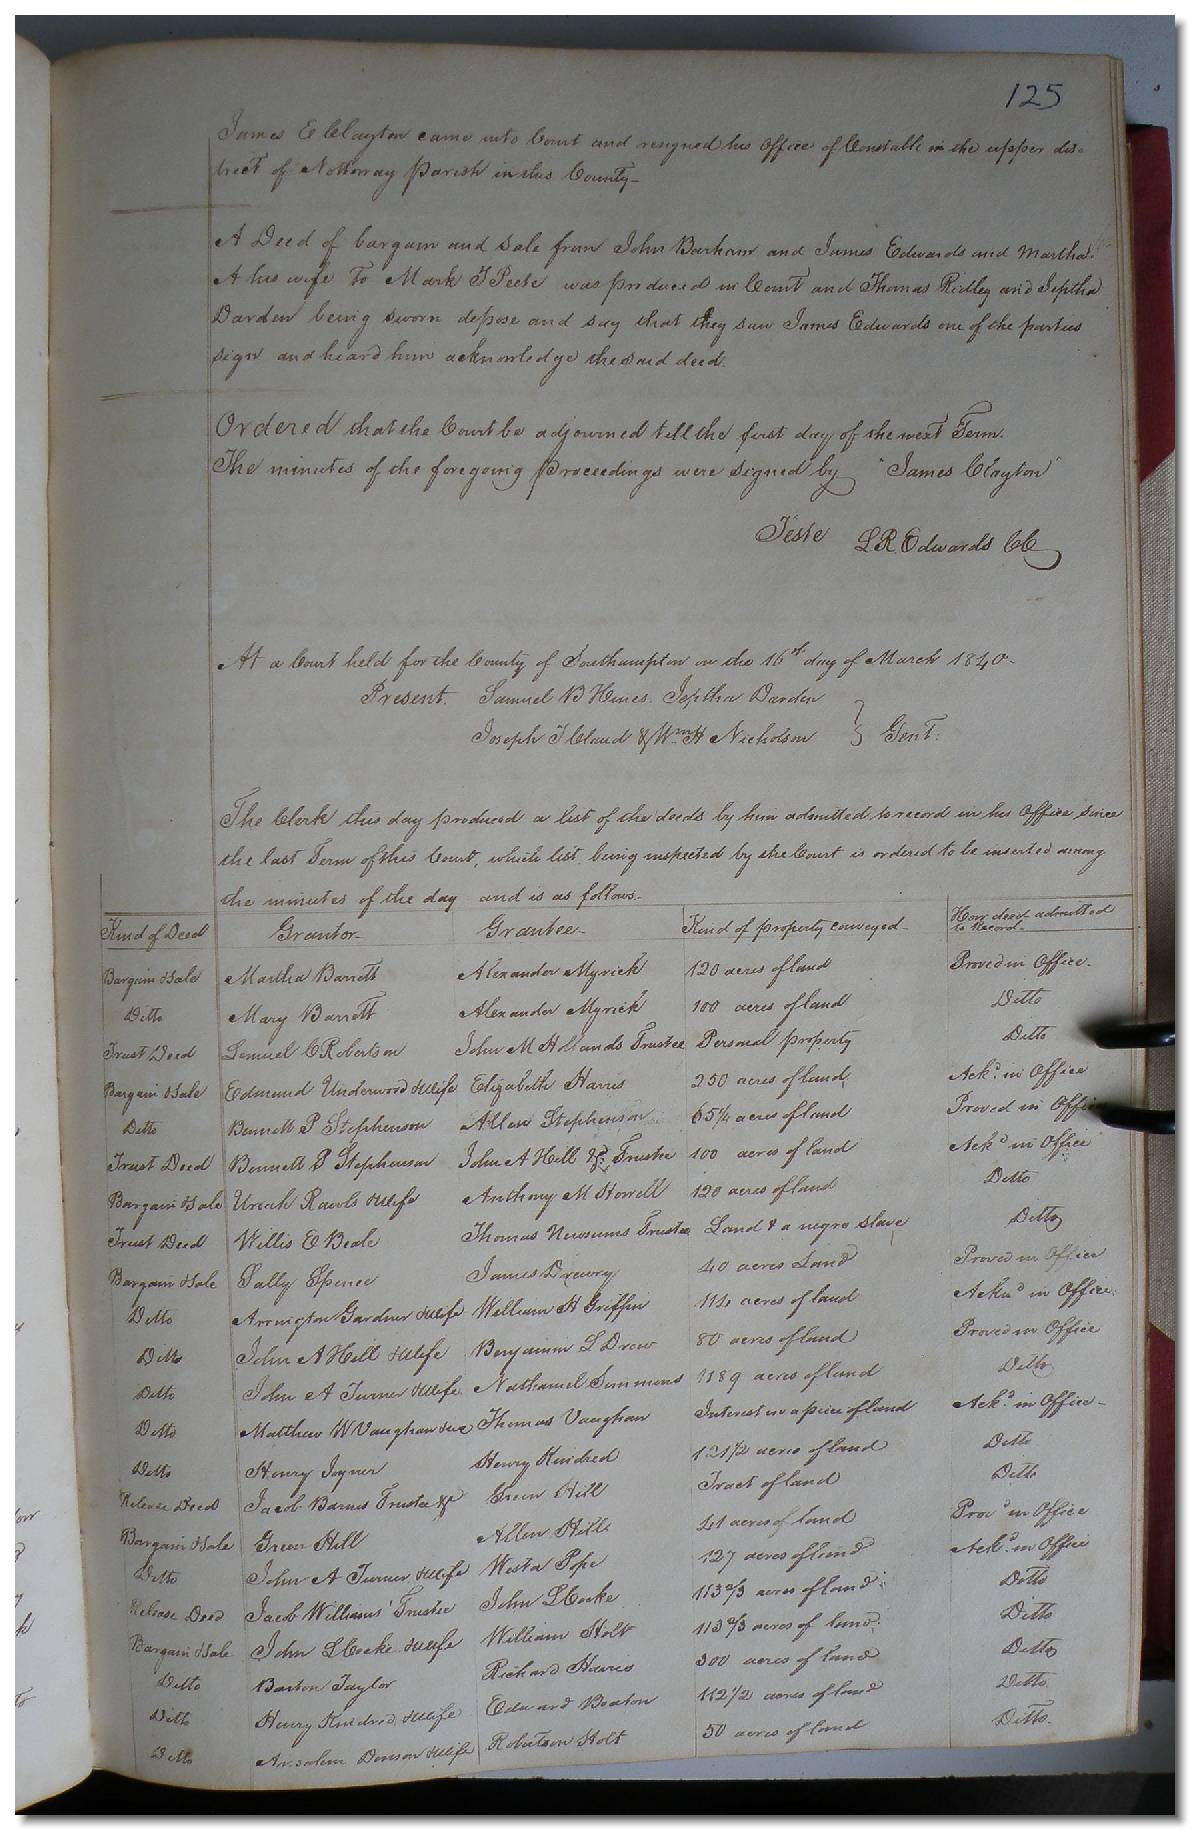 125
James E Clayton came into Court and resigned his Office of Constable in the upper dis-
trict of Nottoway Parish in this County-
A Deed of bargain and Sale from John Barham and James Edwards and Martha
A his wife To Mark J Pete was produced in Court and Thomas Ridley and Jeptha
Darden being sworn depose and say that they saw James Edwards one of the parties
sign and heard him acknowledge the said deed.
Ordered that the Court be adjourned till the first day of the next Term.
The minutes of the foregoing proceedings were signed by "James Clayton"
Teste L R Edwards CC
At a Court held for the County of Southampton on the 16th day of March 1840-
Present. Samuel B Hines. Jeptha Darden
Joseph T Claud & Wm H Nicholson } Gent:
The Clerk this day produced a list of the deeds by him admitted to record in his Office since
the last Term of this Court, which list being inspected by the Court is ordered to be inserted among
the minutes of the day and is as follows.
Kind of Deed Grantor- Grantee- Kind of property conveyed- How deed admitted to Record-
Bargain & Sale Martha Barrett Alexander Myrick 120 acres of land Proved in Office-
Ditto Mary Barrett Alexander Myrick 100 acres of land Ditto
Trust Deed Lemuel C Robertson John M Hollands Trustee Personal property Ditto
Bargain & Sale Edmund Underwood & Wife Elizabeth Harris 250 acres of land Ackd. in Office
Ditto Bennett P Stephenson Allen Stephenson 65 1/4 acres of land Proved in Office
Trust Deed Bennett P Stephenson John A Hill Trustee 100 acres of land Ackd in Office
Bargain & Sale Uriah Rawls & Wife Anthony M Howell 120 acres of land Ditto
Trust Deed Willis E Beale Thomas Newsums Trustee Land & a negro slave Ditto
Bargain & Sale Sally Spence James Drewry 40 acres Land Proved in Office
Ditto Arrington Gardner & Wife William H Griffin 114 acres of land Acknd in Office.
Ditto John A Hill & Wife Benjamin L Drew 80 acres of land Proved in Office
Ditto John A Turner & Wife Nathaniel Simmons 1189 acres of land Ditto
Ditto Matthew W Vaughan Thomas Vaughan Interest in a piece of land Ackd. in Office-
Ditto Henry Joyner Henry Kindred 121 1/2 acres of land Ditto
Release Deed Jacob Barnes Trustee &c Green Hill Tract of land Ditto
Bargain & Sale Green Hill Allen Hill 41 acres of land Provd in Office
Ditto John A Turner & Wife Westa Pope 127 acres of land Ackd. in Office
Release Deed Jacob Williams' Trustee John L Cocke 113 2/3 acres of land: Ditto
Bargain & Sale John L Cocke & Wife William Holt 113 2/3 acres of land: Ditto
Ditto Barton Taylor Richard Harris 300 acres of land Ditto
Ditto Henry Kindred & Wife Edward Beaton 112 1/2 acres of land Ditto.
Ditto Ansalem Denson & Wife Robertson Holt 50 acres of land Ditto.